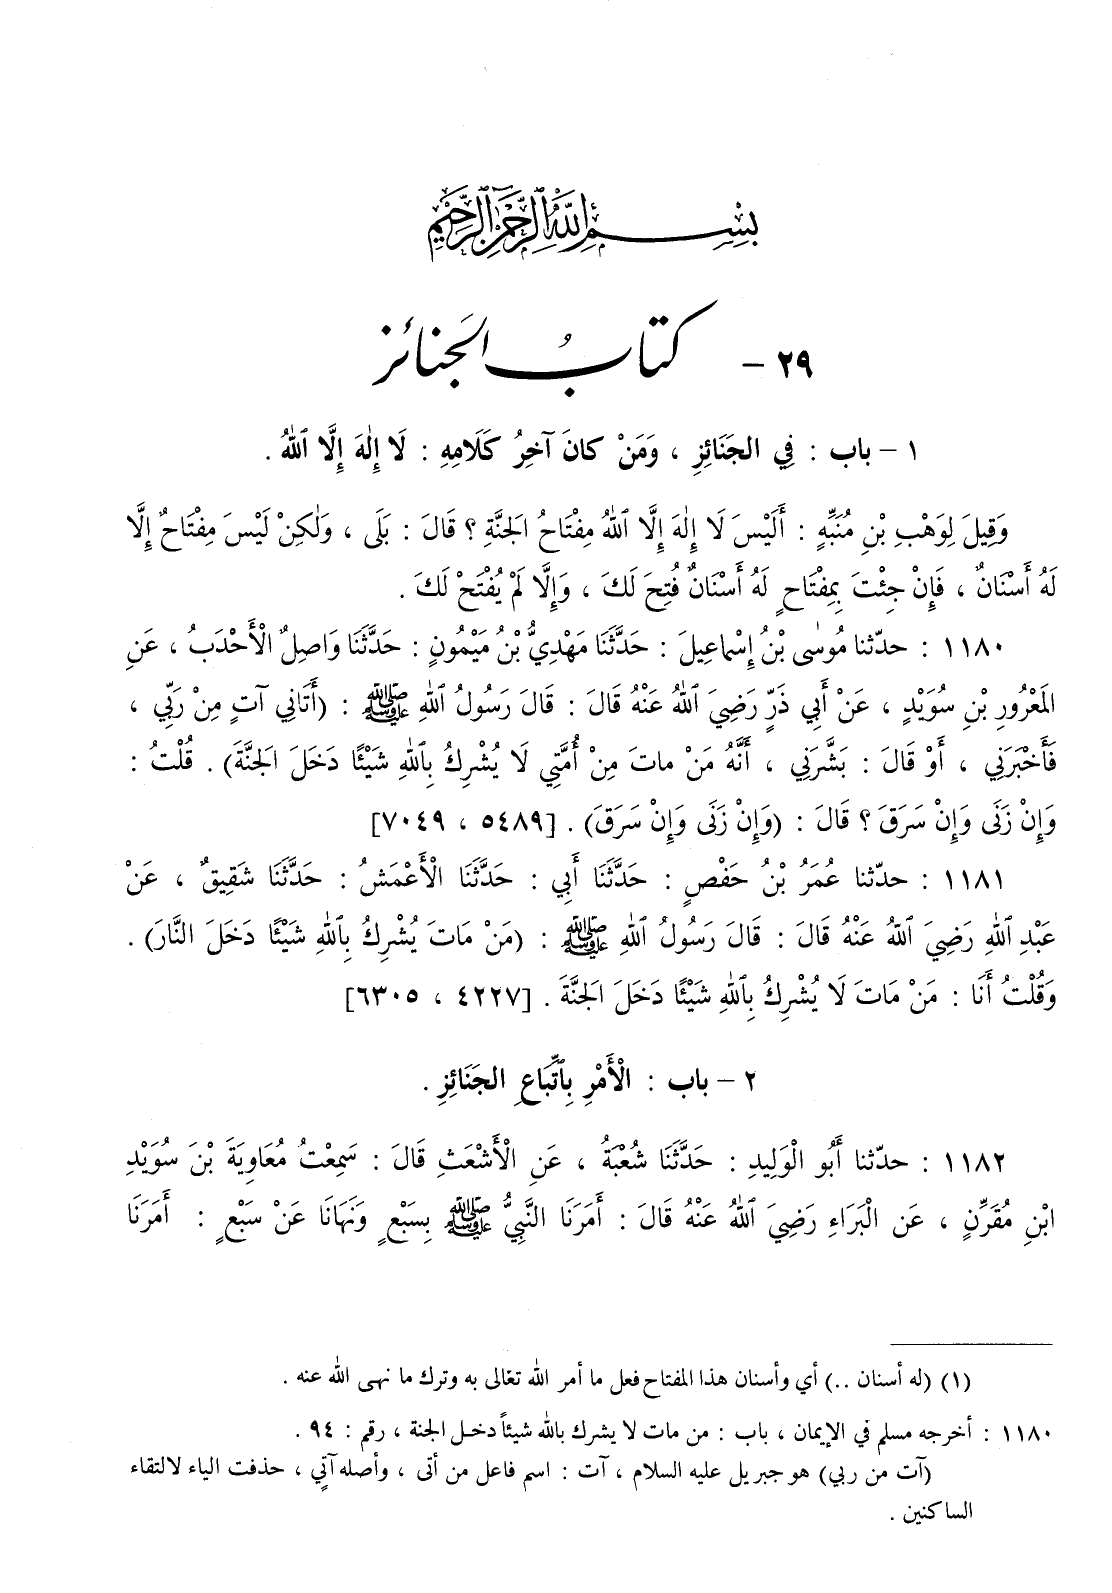 بِسْمِ ٱللَّهِ ٱلرَّحْمَٰنِ ٱلرَّحِيمِ
٢٩ - كتابُ الجَنائز
١ - باب : فِي الجَنَائِزِ ، وَمَنْ كانَ آخِرُ كَلَامِهِ : لَا إِلٰهَ إِلَّا ٱللهُ .
وَقِيلَ لِوَهْبِ بْنِ مُنَبِّهٍ : أَلَيْسَ لَا إِلٰهَ إِلَّا ٱللهُ مِفْتَاحُ الجَنَّةِ ؟ قالَ : بَلَى ، وَلٰكِنْ لَيْسَ مِفْتَاحٌ إِلَّا
لَهُ أَسْنَانٌ ، فَإِنْ جِئْتَ بِمِفْتَاحٍ لَهُ أَسْنَانٌ فُتِحَ لَكَ ، وَإِلَّا لَمْ يُفْتَحْ لَكَ .
١١٨٠ : حدّثنا مُوسٰى بْنُ إِسْماعِيلَ : حَدَّثَنَا مَهْدِيُّ بْنُ مَيْمُونٍ : حَدَّثَنَا وَاصِلٌ الْأَحْدَبُ ، عَنِ
المَعْرُورِ بْنِ سُوَيْدٍ ، عَنْ أَبِي ذَرٍّ رَضِيَ ٱللهُ عَنْهُ قالَ : قالَ رَسُولُ ٱللهِ ﷺ : (أَتَانِي آتٍ مِنْ رَبِّي ،
فَأَخْبَرَنِي ، أَوْ قالَ : بَشَّرَنِي ، أَنَّهُ مَنْ ماتَ مِنْ أُمَّتِي لَا يُشْرِكُ بِٱللهِ شَيْئًا دَخَلَ الجَنَّةَ) . قُلْتُ :
وَإِنْ زَنَى وَإِنْ سَرَقَ ؟ قَالَ : (وَإِنْ زَنَى وَإِنْ سَرَقَ) . [٥٤٨٩ ، ٧٠٤٩]
١١٨١ : حدّثنا عُمَرُ بْنُ حَفْصٍ : حَدَّثَنَا أَبِي : حَدَّثَنَا الْأَعْمَشُ : حَدَّثَنَا شَقِيقٌ ، عَنْ
عَبْدِ ٱللهِ رَضِيَ ٱللهُ عَنْهُ قالَ : قَالَ رَسُولُ ٱللهِ ﷺ : (مَنْ مَاتَ يُشْرِكُ بِٱللهِ شَيْئًا دَخَلَ النَّارَ) .
وَقُلْتُ أَنَا : مَنْ مَاتَ لَا يُشْرِكُ بِٱللهِ شَيْئًا دَخَلَ الجَنَّةَ . [٤٢٢٧ ، ٦٣٠٥]
٢ - باب : الْأَمْرِ بِٱتِّبَاعِ الجَنَائِزِ .
١١٨٢ : حدّثنا أَبُو الْوَلِيدِ : حَدَّثَنَا شُعْبَةُ ، عَنِ الْأَشْعَثِ قَالَ : سَمِعْتُ مُعَاوِيَةَ بْنَ سُوَيْدِ
ابْنِ مُقَرِّنٍ ، عَنِ الْبَرَاءِ رَضِيَ ٱللهُ عَنْهُ قَالَ : أَمَرَنَا النَّبِيُّ ﷺ بِسَبْعٍ وَنَهَانَا عَنْ سَبْعٍ : أَمَرَنَا
(١) (له أسنان ..) أي وأسنان هذا المفتاح فعل ما أمر الله تعالى به وترك ما نهى الله عنه .
١١٨٠ : أخرجه مسلم في الإيمان ، باب : من مات لا يشرك بالله شيئاً دخل الجنة ، رقم : ٩٤ .
(آت من ربي) هو جبريل عليه السلام ، آت : اسم فاعل من أتى ، وأصله آتي ، حذفت الياء لالتقاء
الساكنين .